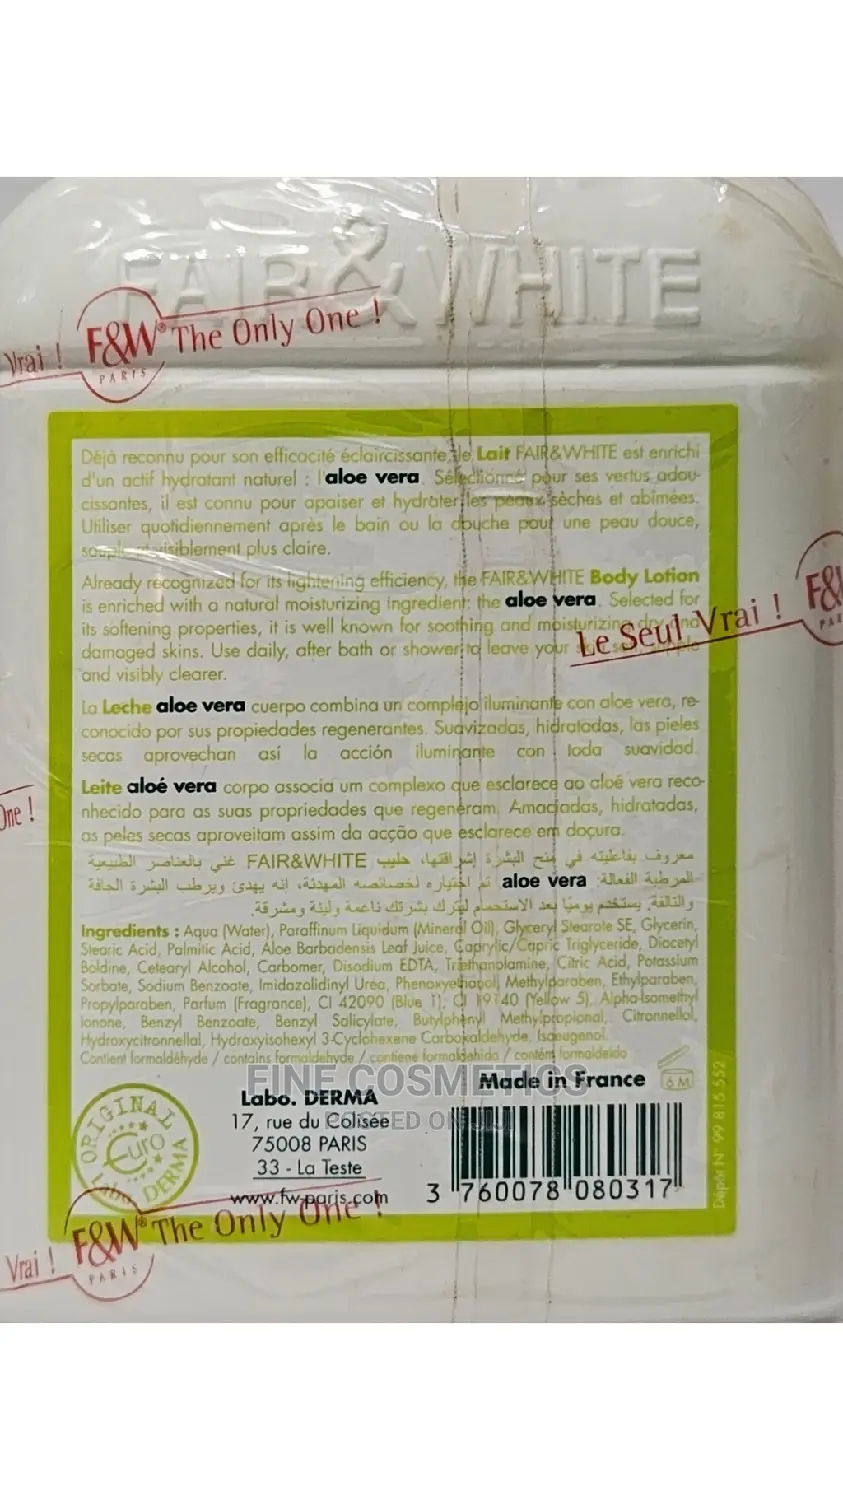 FAIR&WHITE
Vrai ! F&W® The Only One !
PARIS
Déjà reconnu pour son efficacité éclaircissante, le Lait FAIR&WHITE est enrichi
d'un actif hydratant naturel : l'aloe vera. Sélectionné pour ses vertus adou-
cissantes, il est connu pour apaiser et hydrater les peaux sèches et abîmées.
Utiliser quotidiennement après le bain ou la douche pour une peau douce,
visiblement plus claire.
Already recognized for its lightening efficiency, the FAIR&WHITE Body Lotion
is enriched with a natural moisturizing ingredient: the aloe vera. Selected for
its softening properties, it is well known for soothing and moisturizing dry and
damaged skins. Use daily, after bath or shower to leave your
and visibly clearer.
Le Seul Vrai ! F&W
PARIS
La Leche aloe vera cuerpo combina un complejo iluminante con aloe vera, re-
conocido por sus propiedades regenerantes. Suavizadas, hidratadas, las pieles
secas aprovechan así la acción iluminante con toda suavidad.
Leite aloé vera corpo associa um complexo que esclarece ao aloé vera reco-
nhecido para as suas propriedades que regeneram. Amaciadas, hidratadas,
as peles secas aproveitam assim da acção que esclarece em doçura.
One !
معروف بفاعليته في منح البشرة إشراقتها، حليب FAIR&WHITE غني بالعناصر الطبيعية
المرطبة الفعالة: aloe vera تم اختياره لخصائصه المهدئة، انه يهدئ ويرطب البشرة الجافة
والتالفة. يستخدم يوميًا بعد الاستحمام ليترك بشرتك ناعمة ولينة ومشرقة.
Ingredients : Aqua (Water), Paraffinum Liquidum (Mineral Oil), Glyceryl Stearate SE, Glycerin,
Stearic Acid, Palmitic Acid, Aloe Barbadensis Leaf Juice, Caprylic/Capric Triglyceride, Diacetyl
Boldine, Cetearyl Alcohol, Carbomer, Disodium EDTA, Triethanolamine, Citric Acid, Potassium
Sorbate, Sodium Benzoate, Imidazolidinyl Urea, Phenoxyethanol, Methylparaben, Ethylparaben,
Propylparaben, Parfum (Fragrance), CI 42090 (Blue 1), CI 19140 (Yellow 5), Alpha-Isomethyl
Ionone, Benzyl Benzoate, Benzyl Salicylate, Butylphenyl Methylpropional, Citronnellol,
Hydroxycitronnellal, Hydroxyisohexyl 3-Cyclohexene Carboxaldehyde, Isoeugenol.
Contient formaldéhyde / contains formaldehyde / contiene formaldehido / contém formaldeído
FINE COSMETICS
POSTED ON JIJI
Made in France 6 M
ORIGINAL
Euro
Labo DERMA
Labo. DERMA
17, rue du Colisée
75008 PARIS
33 - La Teste
www.fw-paris.com
3 760078 080317
Dépôt N° 99 815 552
Vrai ! F&W® The Only One !
PARIS